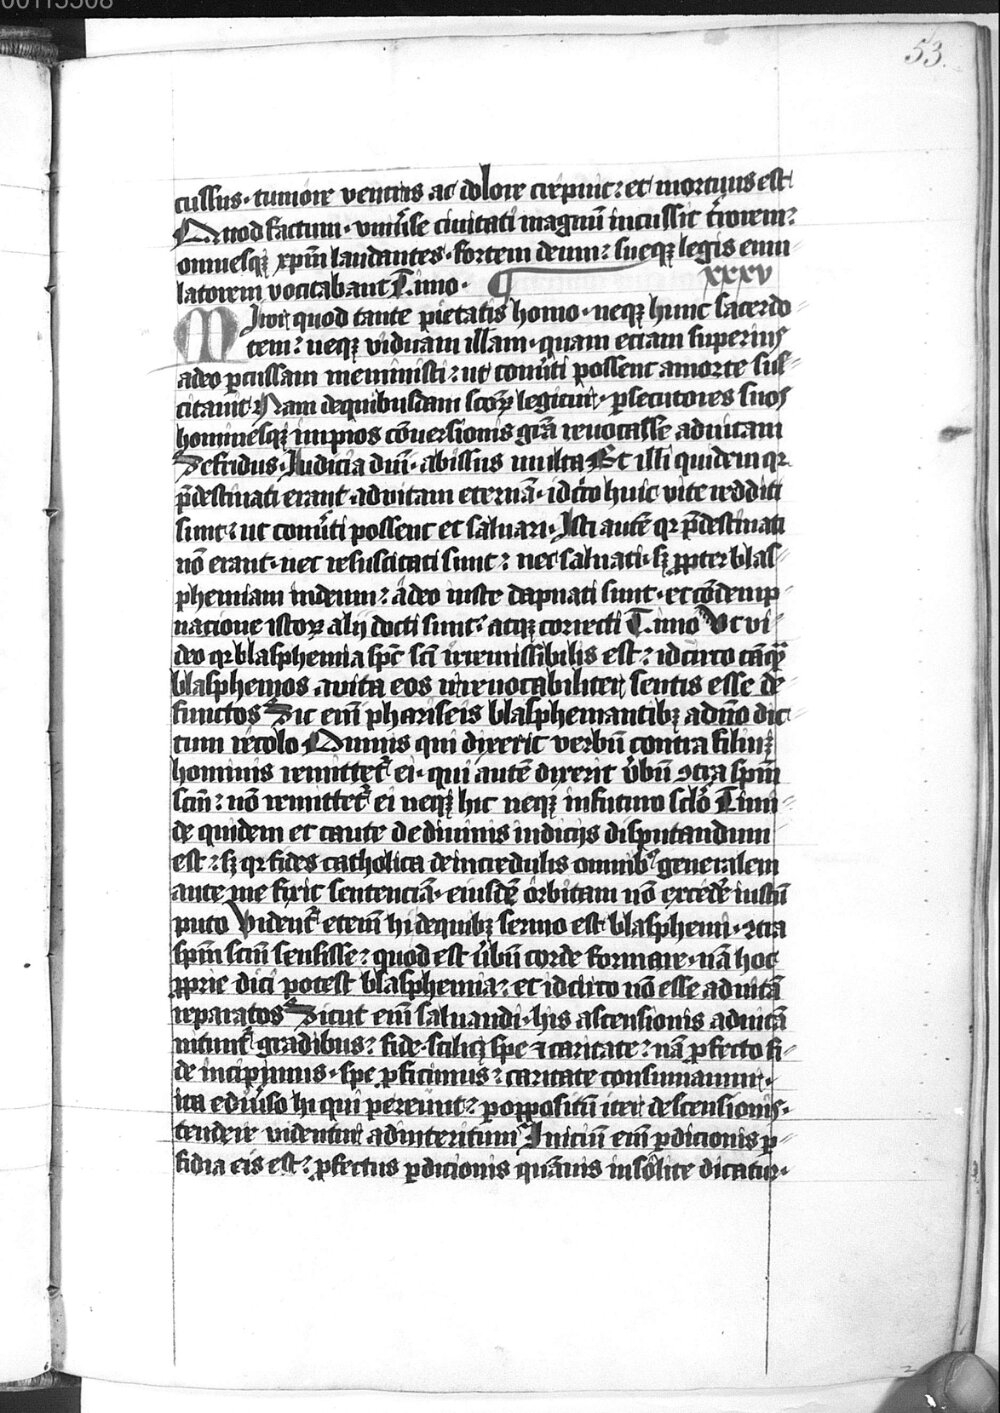 00115508
53.
cussus. tumore ventris ac dolore crepuit: et mortuus est
Quod factum. universe civitati magnū incussit t̓rorem:
omnesq; xp̄m laudantes. fortem deum: sueq; legis emu
latorem vocitabant Timo. xxxv
Miror quod tante pietatis homo. neq; hunc sacerdo
tem: neq; viduam illam. quam etiam superius
adeo p̱cussam meministi: ut conv̓ti possent a morte sus
citavit Nam de quibusdam sc̄oꝝ legitur. p̱secutores suos
hominesq; impios cōversionis gr̄a revocasse ad vitam
Sefridus. Judicia dn̄i. abissus multa Et illi quidem qꝛ
p̄destinati erant. ad vitam eternā. idc̓ro huic vite redditi
sunt: ut conv̓ti possent et salvari. Isti autē qꝛ p̄destinati
nō erant. nec resuscitati sunt: nec salvati. sꝫ ꝓpter blas
phemiam in deum: adeo iuste dapnati sunt. et cōdemp
nacione istoꝝ alij docti sunt: atq; correcti Timo Ut vi
deo qꝛ blasphemia sp̄c sc̄i irremissibilis est: idcirco tāq̄
blasphemos a vita eos irrevocabiliter sentis esse de
functos Sic em̄ phariseis blasphemantibꝫ a dn̄o dic
tum recolo Omnis qui dixerit verbū contra filium
hominis remittet̓ ei. qui autē dixerit v̓bū ꝯtra sp̄m
sc̄m: nō remittet̓ ei neq; hic neq; in futuro sc̄lo Timi
de quidem et caute de divinis iudicijs disputandum
est: sꝫ qꝛ fides catholica de incredulis omnibꝰ generalem
ante me fixit sentenciā. eiusdē orbitam nō excedē iustū
puto Vident̓ etem̄ hi de quibꝫ sermo est blasphemi. ꝯtra
sp̄m sc̄m sensisse: quod est v̓bū corde formare. nā hoc
ꝓprie dici potest blasphemia: et idcirco nō esse ad vitā
reparatos Sicut em̄ salvandi. his ascensionis ad vitā
nitunt̓ gradibus: fide. scilicꝫ spe ⁊ caritate: nā p̱fecto fi
de incipimus. spe p̱ficimus: caritate consumamur.
ita e div̓so hi qui pereunt: p̱ oppositū iter descensionis.
tendere videntur ad interitum Iniciū em̄ p̱dicionis p̱
fidia eis est: p̱fectus p̱dicionis quāvis insolite dicatur.